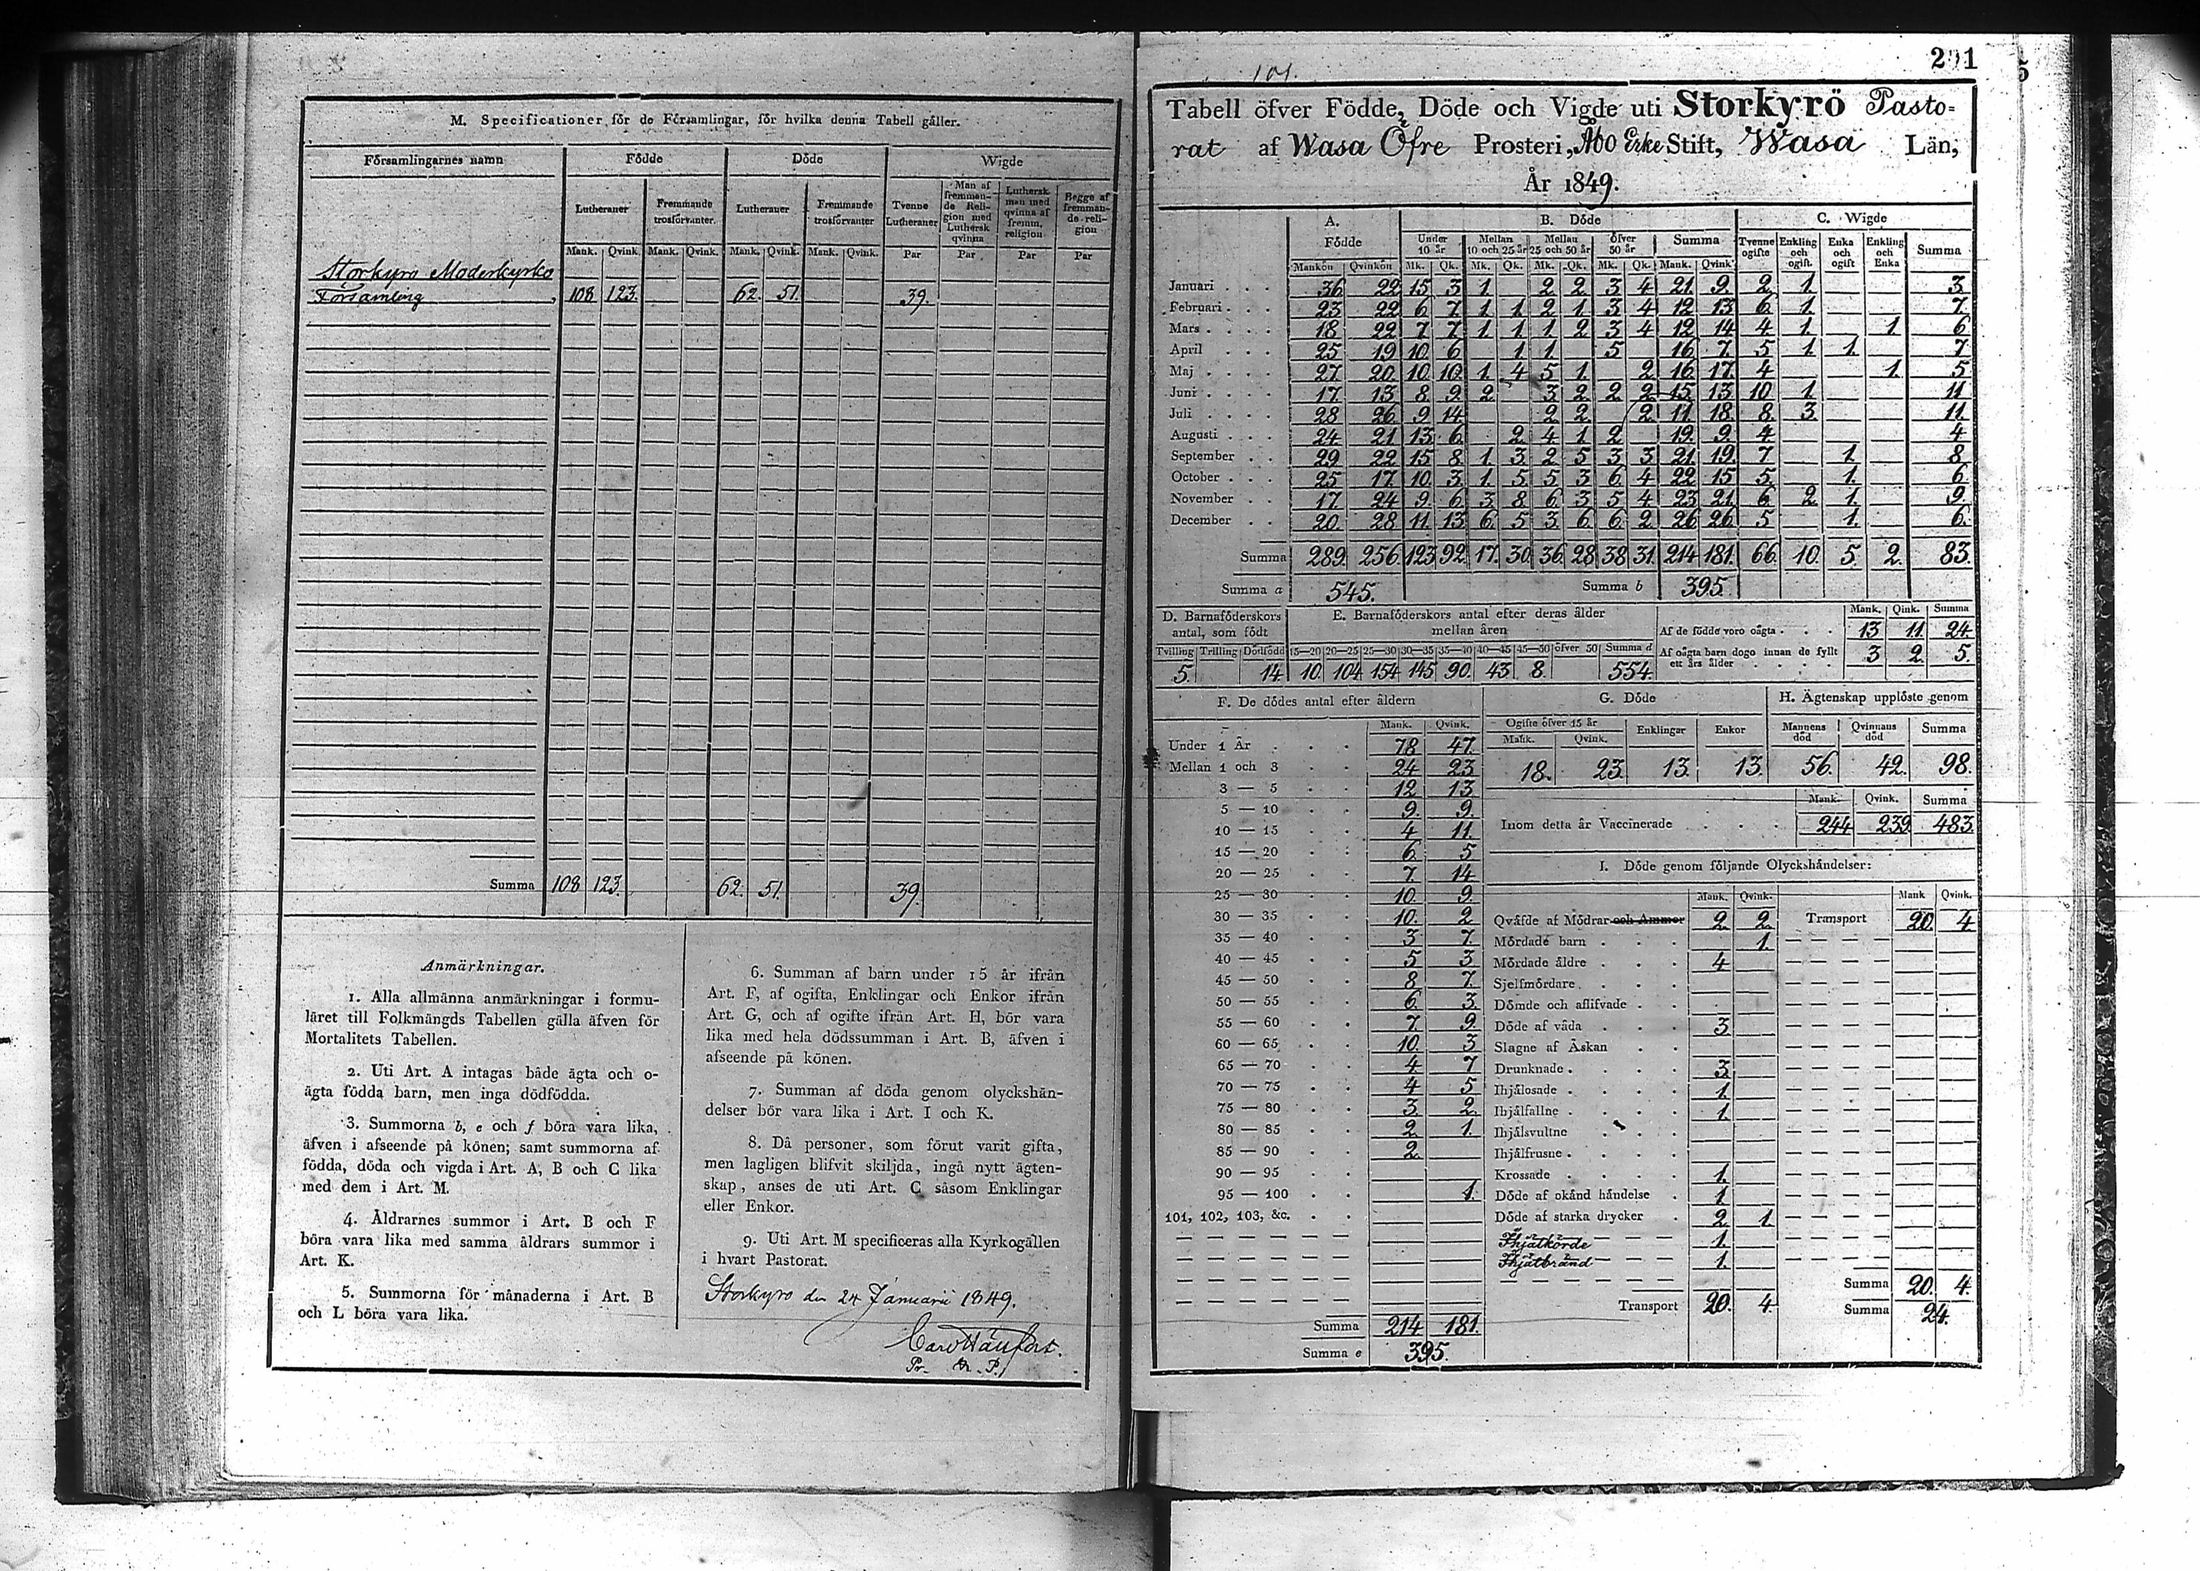 M. Specificationer för de Församlingar, för hvilka denna Tabell gäller.
Församlingarnes namn Födde Döde Wigde
Lutheraner Fremmande trosförvanter. Lutheraner Fremmande trosförvanter Tvenne Lutheraner Man af fremmande Religion med Luthersk qvinna Luthersk man med qvinna af fremm. religion Begge af fremmande religion
Mank. Qvink. Mank. Qvink. Mank. Qvink. Mank. Qvink. Par Par Par Par
Storkyro Moderkyrko
Församling 108 123. 62. 51. 39.
Summa 108 123. 62. 51. 39.
Anmärkningar.
1. Alla allmänna anmärkningar i formu-
läret till Folkmängds Tabellen gälla äfven för
Mortalitets Tabellen.
2. Uti Art. A intagas både ägta och o-
ägta födda barn, men inga dödfödda.
3. Summorna b, e och f böra vara lika,
äfven i afseende på könen; samt summorna af
födda, döda och vigda i Art. A, B och C lika
med dem i Art. M.
4. Åldrarnes summor i Art. B och F
böra vara lika med samma åldrars summor i
Art. K.
5. Summorna för månaderna i Art. B
och L böra vara lika.
6. Summan af barn under 15 år ifrån
Art. F, af ogifta, Enklingar och Enkor ifrån
Art. G, och af ogifte ifrån Art. H, bör vara
lika med hela dödssumman i Art. B, äfven i
afseende på könen.
7. Summan af döda genom olyckshän-
delser bör vara lika i Art. I och K.
8. Då personer, som förut varit gifta,
men lagligen blifvit skiljda, ingå nytt ägten-
skap, anses de uti Art. C såsom Enklingar
eller Enkor.
9. Uti Art. M specificeras alla Kyrkogällen
i hvart Pastorat.
Storkyro den 24 Januarii 1849.
101.
201
Tabell öfver Födde, Döde och Vigde uti Storkyrö Pasto=
rat af Wasa Öfre Prosteri, Åbo Erke Stift, Wasa Län,
År 1849.
A. Födde B. Döde C. Wigde
Under 10 år Mellan 10 och 25 år Mellan 25 och 50 år Öfver 50 år Summa Tvenne ogifte Enkling och ogift. Enka och ogift Enkling och Enka Summa
Mankön Qvinkön Mk. Qk. Mk. Qk. Mk. Qk. Mk. Qk. Mank. Qvink.
Januari 36 22 15 3 1 2 2 3 4 21. 9. 2. 1. 3.
Februari 23 22 6 7 1 1 2 1 3 4 12 13 6. 1. 7.
Mars 18 22 7 7 1 1 1 2 3 4 12 14 4. 1 1. 6
April 25 19 10 6 1 1 5 16 7. 5 1. 1. 7.
Maj 27 20 10 10 1. 4 5 1. 2 16 17. 4 1. 5
Juni 17. 13 8 9 2 3 2 2 2 15 13 10 1. 11
Juli 28 26. 9 14. 2 2. 2 11 18. 8. 3. 11.
Augusti 24 21 13 6. 2 4 1 2 19. 9. 4. 4
September 29 22 15 8. 1 3 2 5 3 3 21 19. 7 1. 8
October 25 17. 10. 3. 1. 5 5 3 6 4 22 15 5. 1. 6.
November 17. 24 9 6 3 8 6 3 5 4 23 21. 6. 2. 1. 9.
December 20. 28 11. 13. 6. 5 3. 6 6. 2 26 26 5 1. 6.
Summa 289. 256. 123 92. 17. 30. 36. 28. 38. 31. 214 181. 66. 10. 5. 2. 83.
Summa a 545. Summa b 395.
D. Barnaföderskors antal, som födt
Tvilling Trilling Dödfödd
5. 14.
E. Barnaföderskors antal efter deras ålder
mellan åren
15—20 20—25 25—30 30—35 35—40 40—45 45—50 öfver 50 Summa d
10. 104 154 145 90. 43. 8. 554.
Mank. Qink. Summa
Af de födde voro oägta 13 11. 24.
Af oägta barn dogo innan de fyllt
ett års ålder 3 2. 5.
F. De dödes antal efter åldern
Mank. Qvink.
Under 1 År 78 47.
Mellan 1 och 3 24 23
3 — 5 12 13
5 — 10 9. 9.
10 — 15 4 11.
15 — 20 6. 5
20 — 25 7. 14
25 — 30 10. 9.
30 — 35 10. 2
35 — 40 3 7.
40 — 45 5 3
45 — 50 8 7.
50 — 55 6. 3.
55 — 60 7. 9
60 — 65 10. 3
65 — 70 4 7
70 — 75 4 5
75 — 80 3 2.
80 — 85 2. 1.
85 — 90 2.
90 — 95
95 — 100 1.
101, 102, 103, &c.
Summa 214 181.
Summa e 395.
G. Döde
Ogifte öfver 15 år Enklingar Enkor
Mank. Qvink.
18. 23. 13. 13.
H. Ägtenskap upplöste genom
Mannens död Qvinnans död Summa
56. 42. 98.
Mank. Qvink. Summa
Inom detta år Vaccinerade 244 239. 483.
I. Döde genom följande Olyckshändelser:
Mank. Qvink. Mank Qvink.
Qväfde af Mödrar och Ammor 2. 2. Transport 20. 4
Mördade barn 1.
Mördade äldre 4
Sjelfmördare
Dömde och aflifvade
Döde af våda 3
Slagne af Åskan
Drunknade 3.
Ihjälosade 1.
Ihjälfallne 1.
Ihjälsvultne
Ihjälfrusne
Krossade 1.
Döde af okänd händelse 1
Döde af starka drycker 2 1.
Ihjälkörde 1.
Ihjälbränd 1.
Summa 20. 4.
Transport 20. 4 Summa 24.